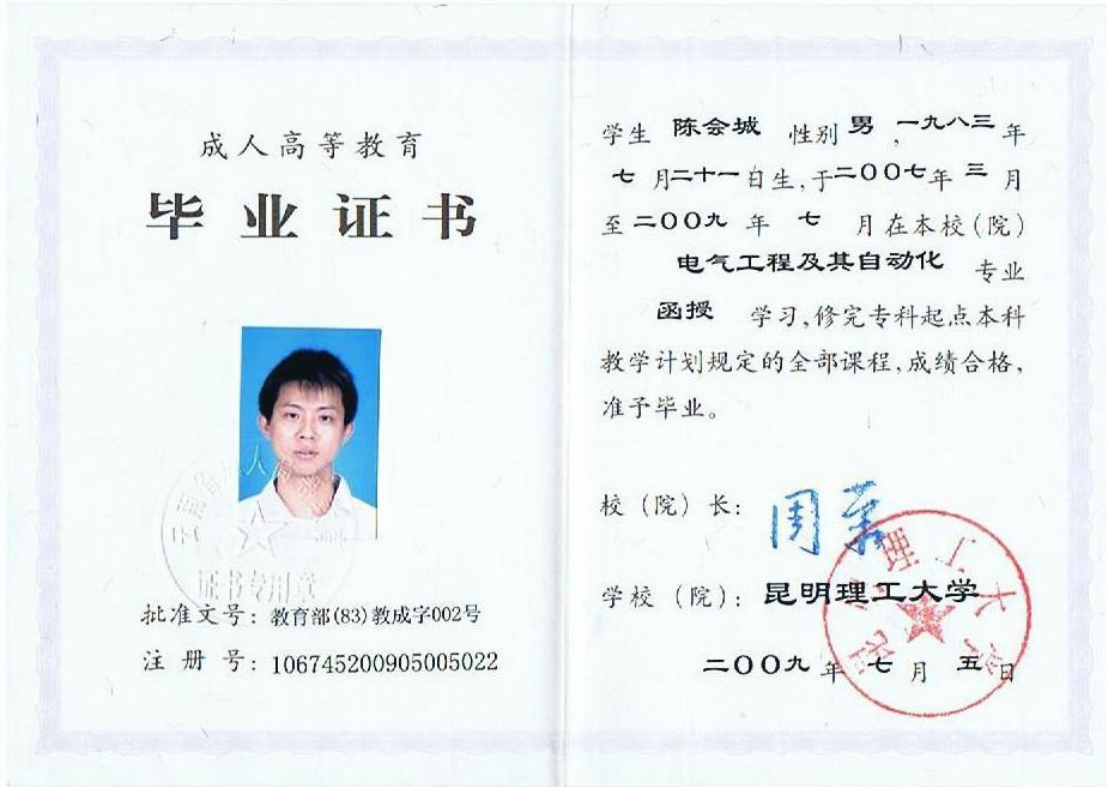 成人高等教育
毕业证书
云南省成人高等教育
证书专用章
批准文号：教育部(83)教成字002号
注册号：106745200905005022
学生 陈会城 性别 男，一九八三年
七月二十一日生，于二〇〇七年三月
至二〇〇九年七月在本校(院)
电气工程及其自动化 专业
函授 学习，修完专科起点本科
教学计划规定的全部课程，成绩合格，
准予毕业。
校(院)长：
学校(院)：昆明理工大学
昆明理工大学
二〇〇九年七月五日